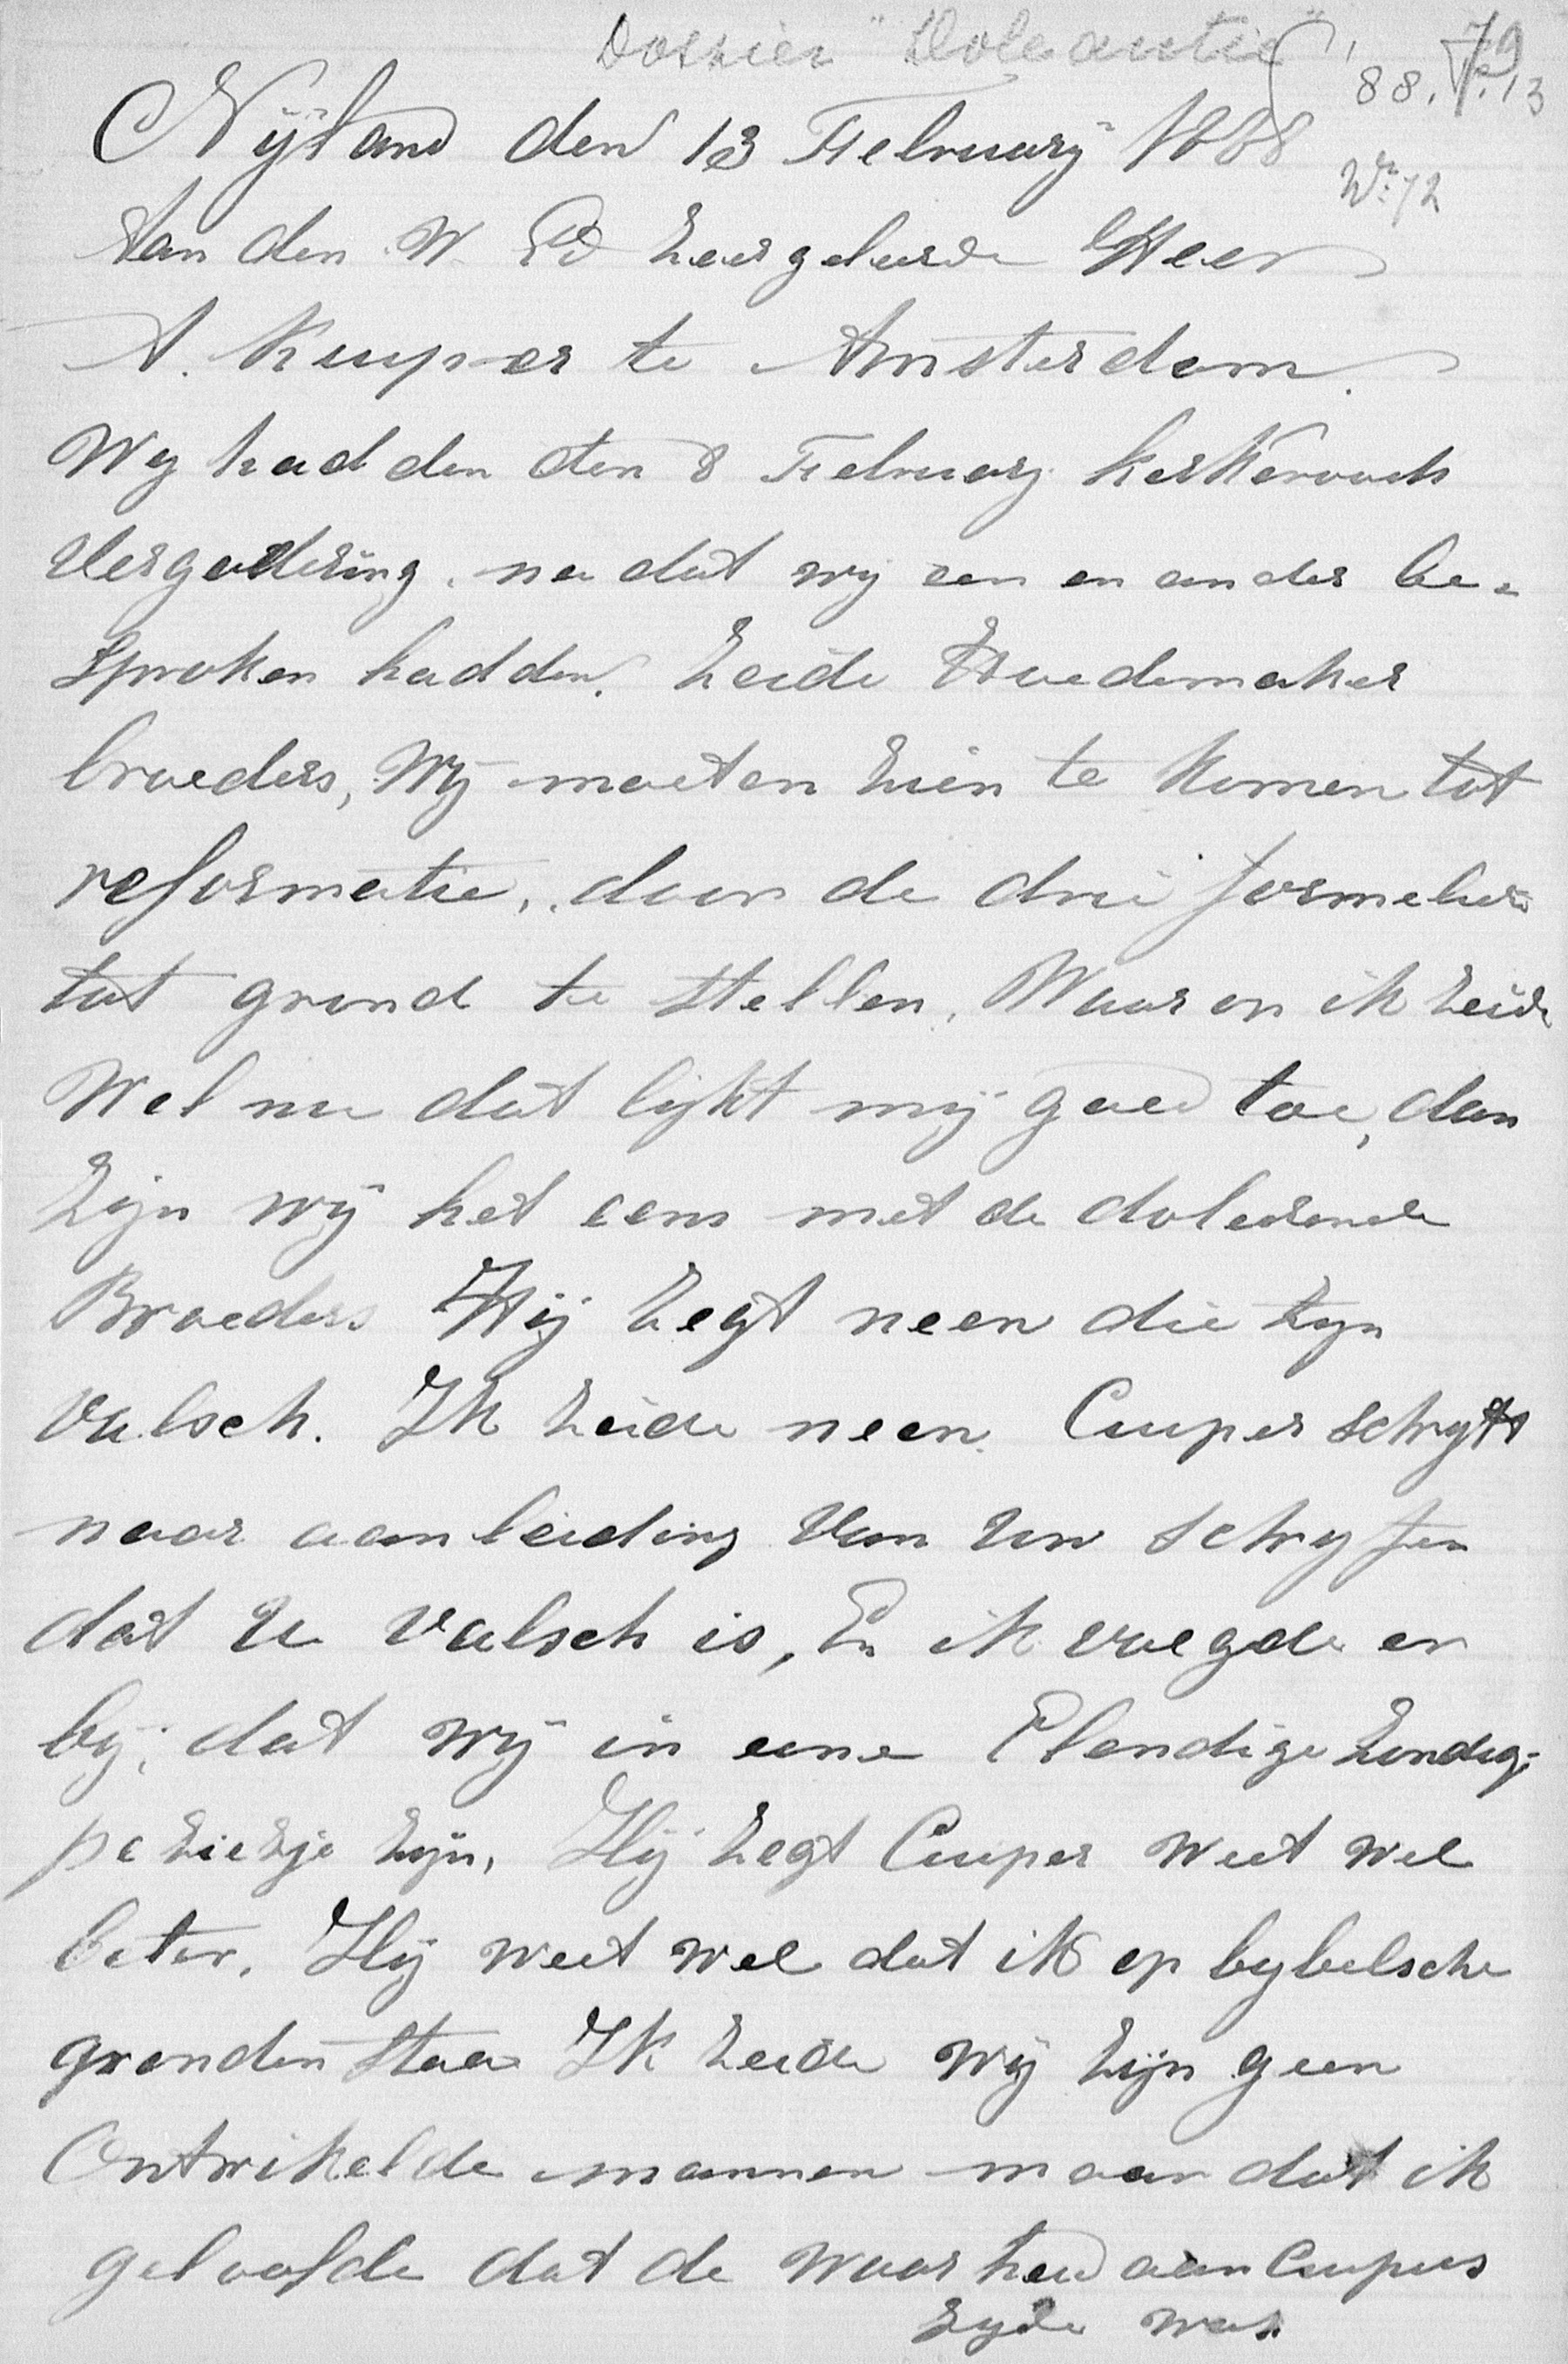 Dossier "Doleantie"
79
88. F. 13
Nijland den 13 February 1888
Wr: 72
Aan den W. Ed zeergeleerde Heer
A. Kuyper te Amsterdam.
Wy hadden den 8 February kerkeraads
vergadering. na dat wy een en ander be-
sproken hadden. zeide Hoedemaker
broeders, Wij moeten zien te komen tot
reformatie, door de drie formelier
tot grond te stellen. Waar op ik zeide
Wel nu dat lijkt mij goed toe, dan
Zijn wij het eens met de doleerende
Broeders Hij zegt neen die zyn
valsch. Ik zeide neen. Cuper schryft
naar aanleiding van Uw schryfen
dat U valsch is, En ik voegde er
bij, dat wij in eene Elendige zondig-
pozietzje zijn. Hij zegt Cuper weet wel
beter. Hij weet wel dat ik op bybelsche
gronden staa Ik zeide wij zijn geen
Ontwikelde mannen maar dat ik
geloofde dat de waarheid aan Cupers
zyde was.